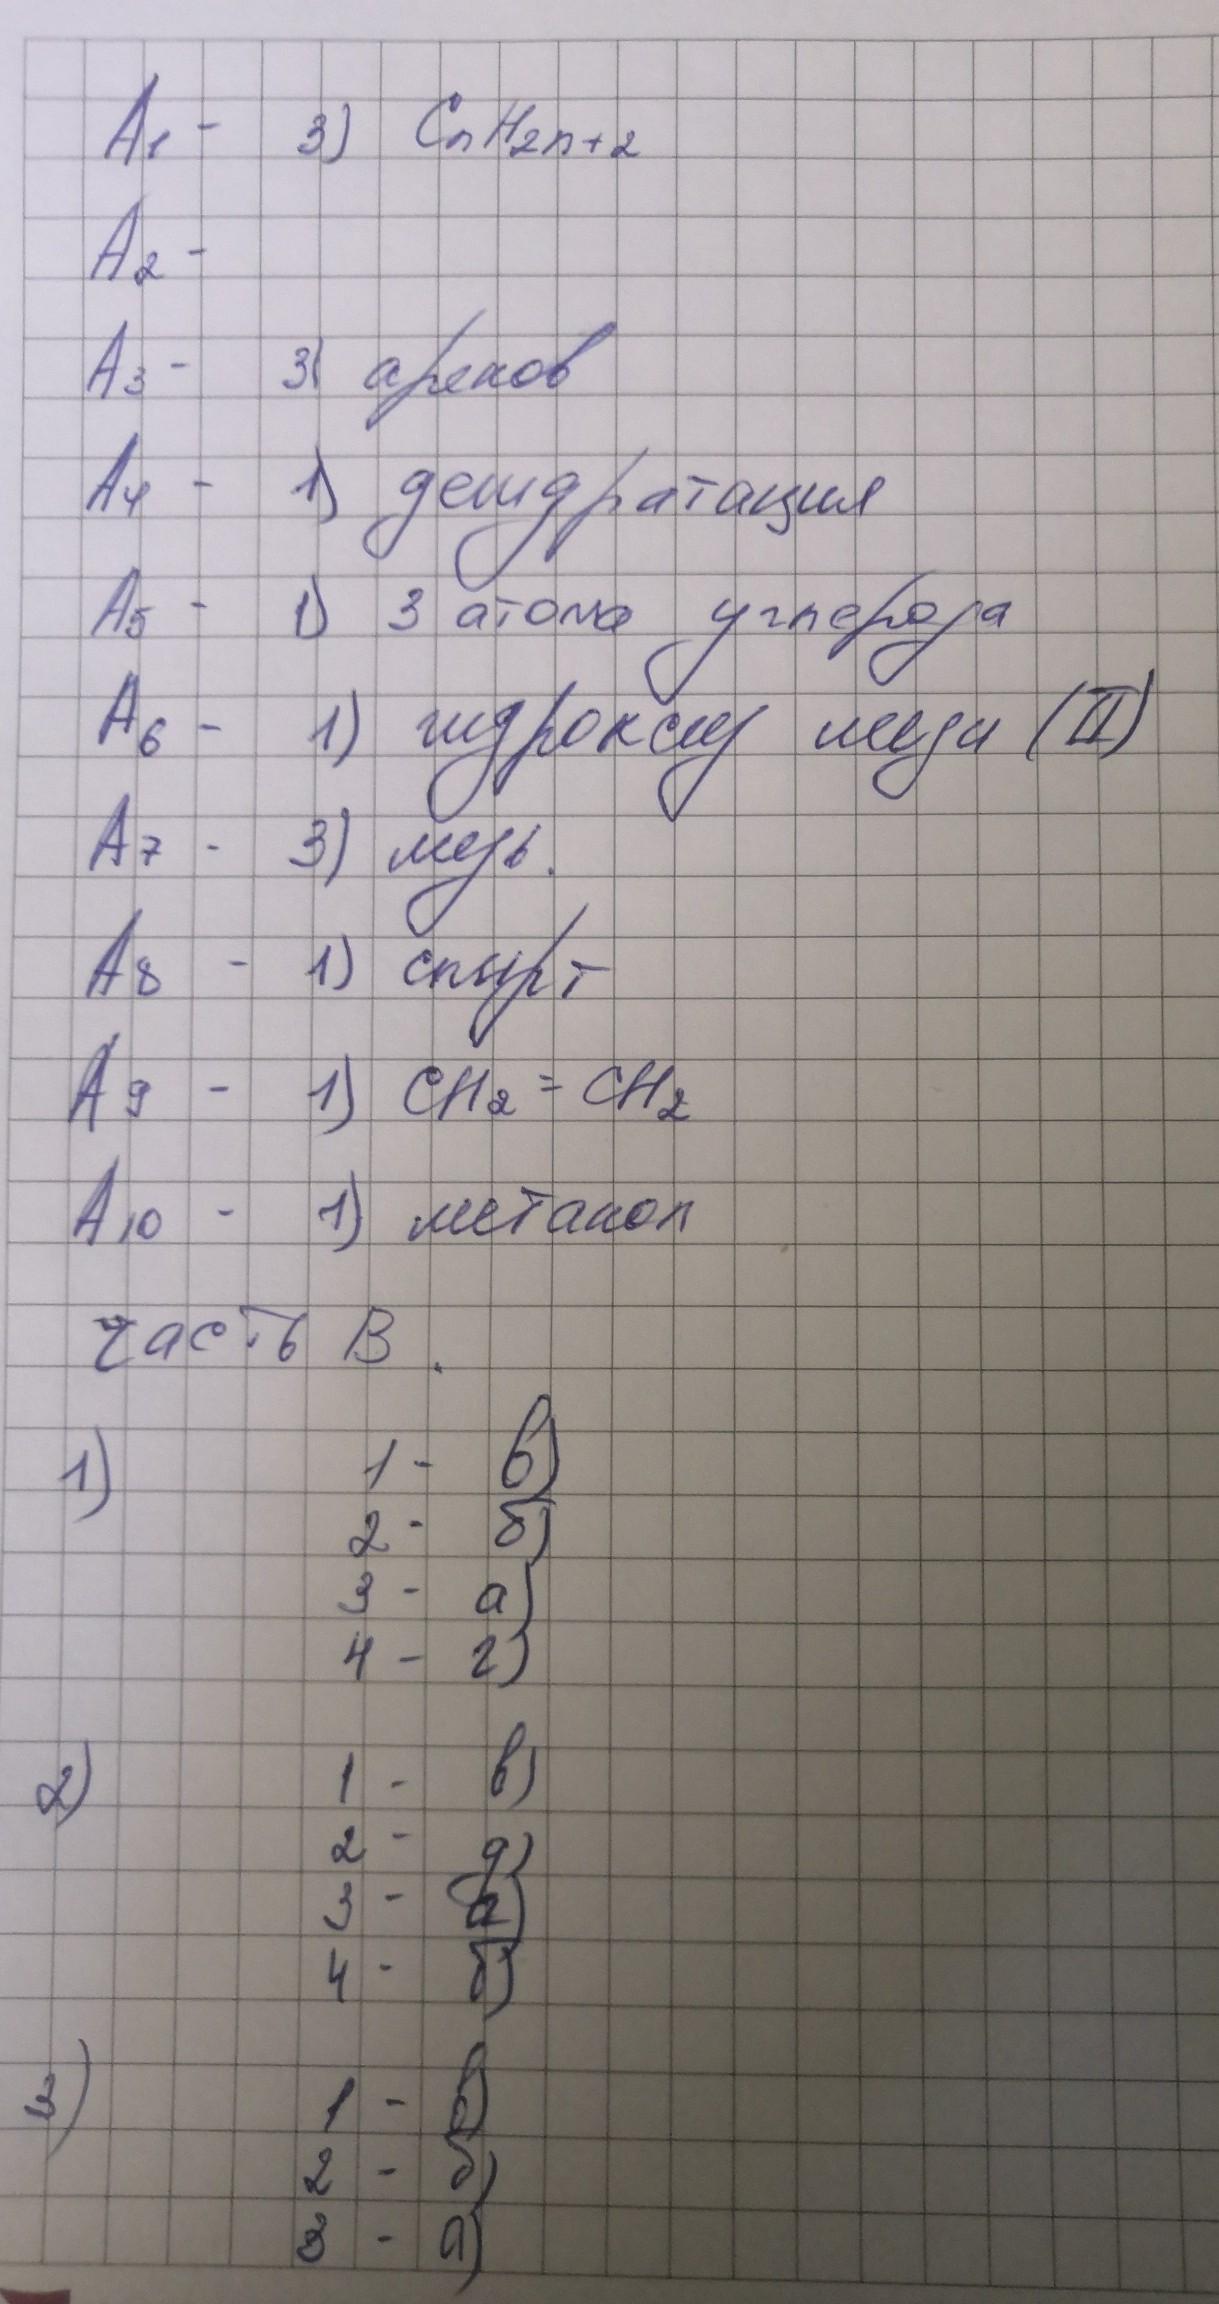 А1 - 3) CnH2n+2
А2 -
А3 - 3) аренов
А4 - 1) дегидратация
А5 - 1) 3 атома углерода
А6 - 1) гидроксид меди (II)
А7 - 3) медь.
А8 - 1) спирт
А9 - 1) CH2 = CH2
А10 - 1) метанол
Часть В.
1) 1 - в)
2 - б)
3 - а)
4 - г)
2) 1 - в)
2 - д)
3 -
4 - б)
3) 1 - в)
2 - б)
3 - а)